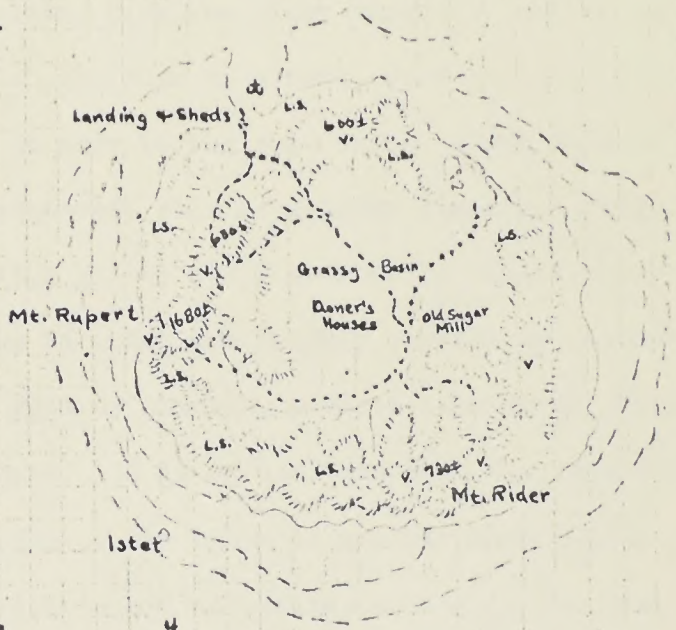 Landing & Sheds
L.S.
600±
V.
L.S.
L.S.
L.S.
V.
Grassy Basin
Doner's
Houses
Old Sugar
Mill
Mt. Rupert
1680±
V
V
L.S.
L.S.
V. 730± V.
Mt. Rider